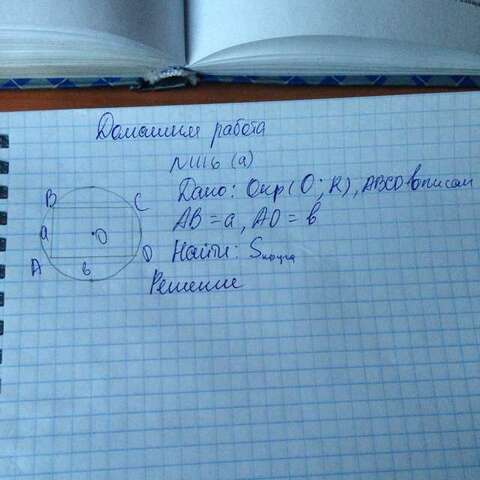 Домашняя работа
N1116 (а)
Дано: Окр(O; R), ABCD вписан
AB = a, AD = b
Найти: Sкруга
Решение
B
C
a
O
A
b
D